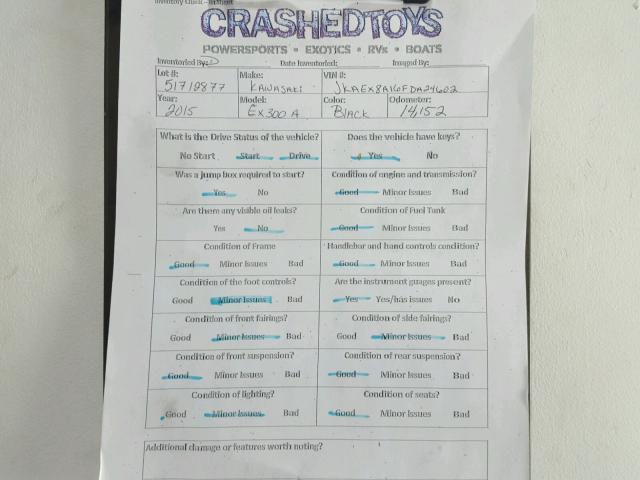 CRASHEDTOYS
POWERSPORTS • EXOTICS • RVs • BOATS
Inventoried By: Date Inventoried: Imaged By:
Lot #: Make: VIN #:
51712877 KAWASAKI JKAEX8A16FDA24602
Year: Model: Color: Odometer:
2015 EX300A BLACK 14,152
What is the Drive Status of the vehicle? Does the vehicle have keys?
No Start Start Drive Yes No
Was a jump box required to start? Condition of engine and transmission?
Yes No Good Minor Issues Bad
Are there any visible oil leaks? Condition of Fuel Tank
Yes No Good Minor Issues Bad
Condition of Frame Handlebar and hand controls condition?
Good Minor Issues Bad Good Minor Issues Bad
Condition of the foot controls? Are the instrument guages present?
Good Minor Issues Bad Yes Yes/has issues No
Condition of front fairings? Condition of side fairings?
Good Minor Issues Bad Good Minor Issues Bad
Condition of front suspension? Condition of rear suspension?
Good Minor Issues Bad Good Minor Issues Bad
Condition of lighting? Condition of seats?
Good Minor Issues Bad Good Minor Issues Bad
Additional damage or features worth noting?